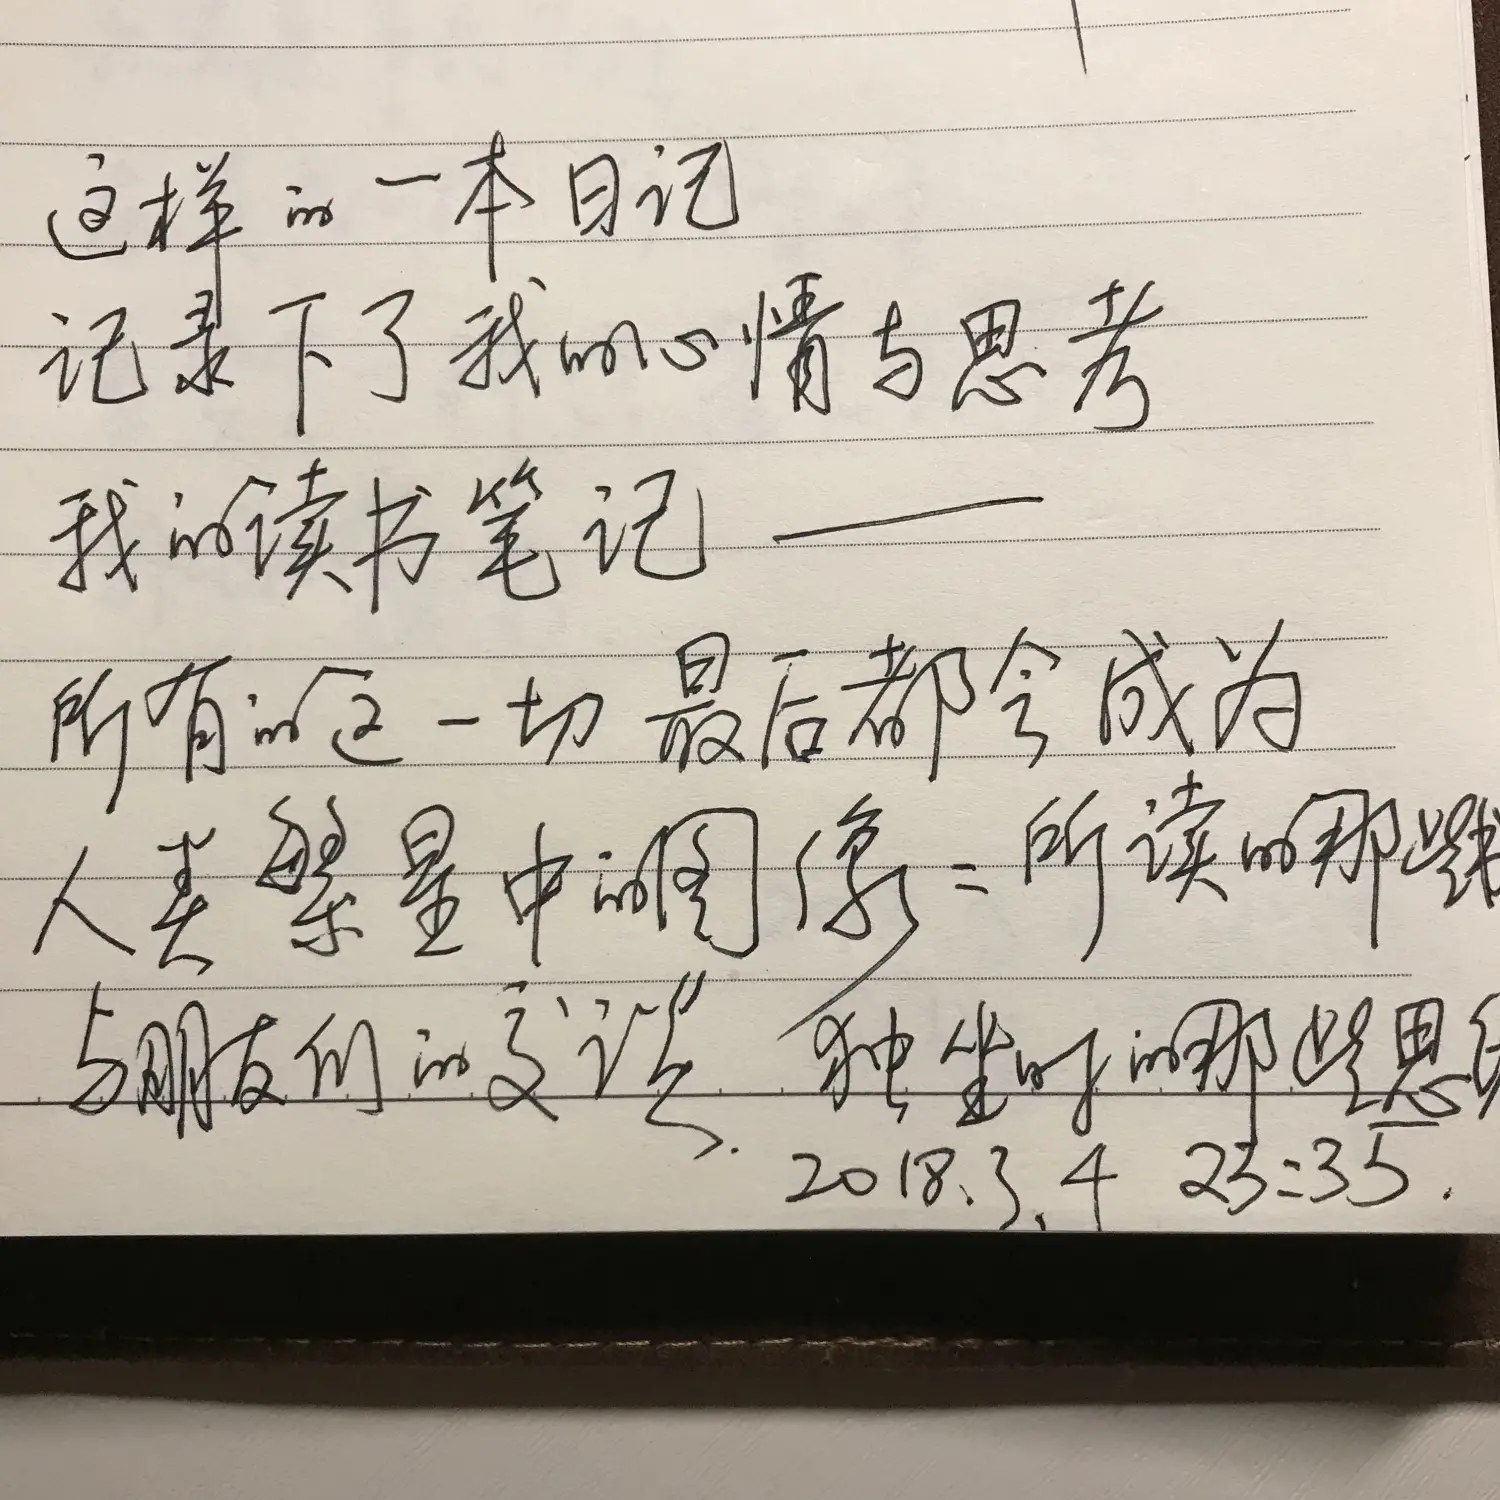 这样的一本日记
记录下了我的心情与思考
我的读书笔记——
所有的这一切最后都会成为
人类繁星中的图像=所读的那些
与朋友们的交谈. 独坐时的那些思
2018.3.4 23:35.